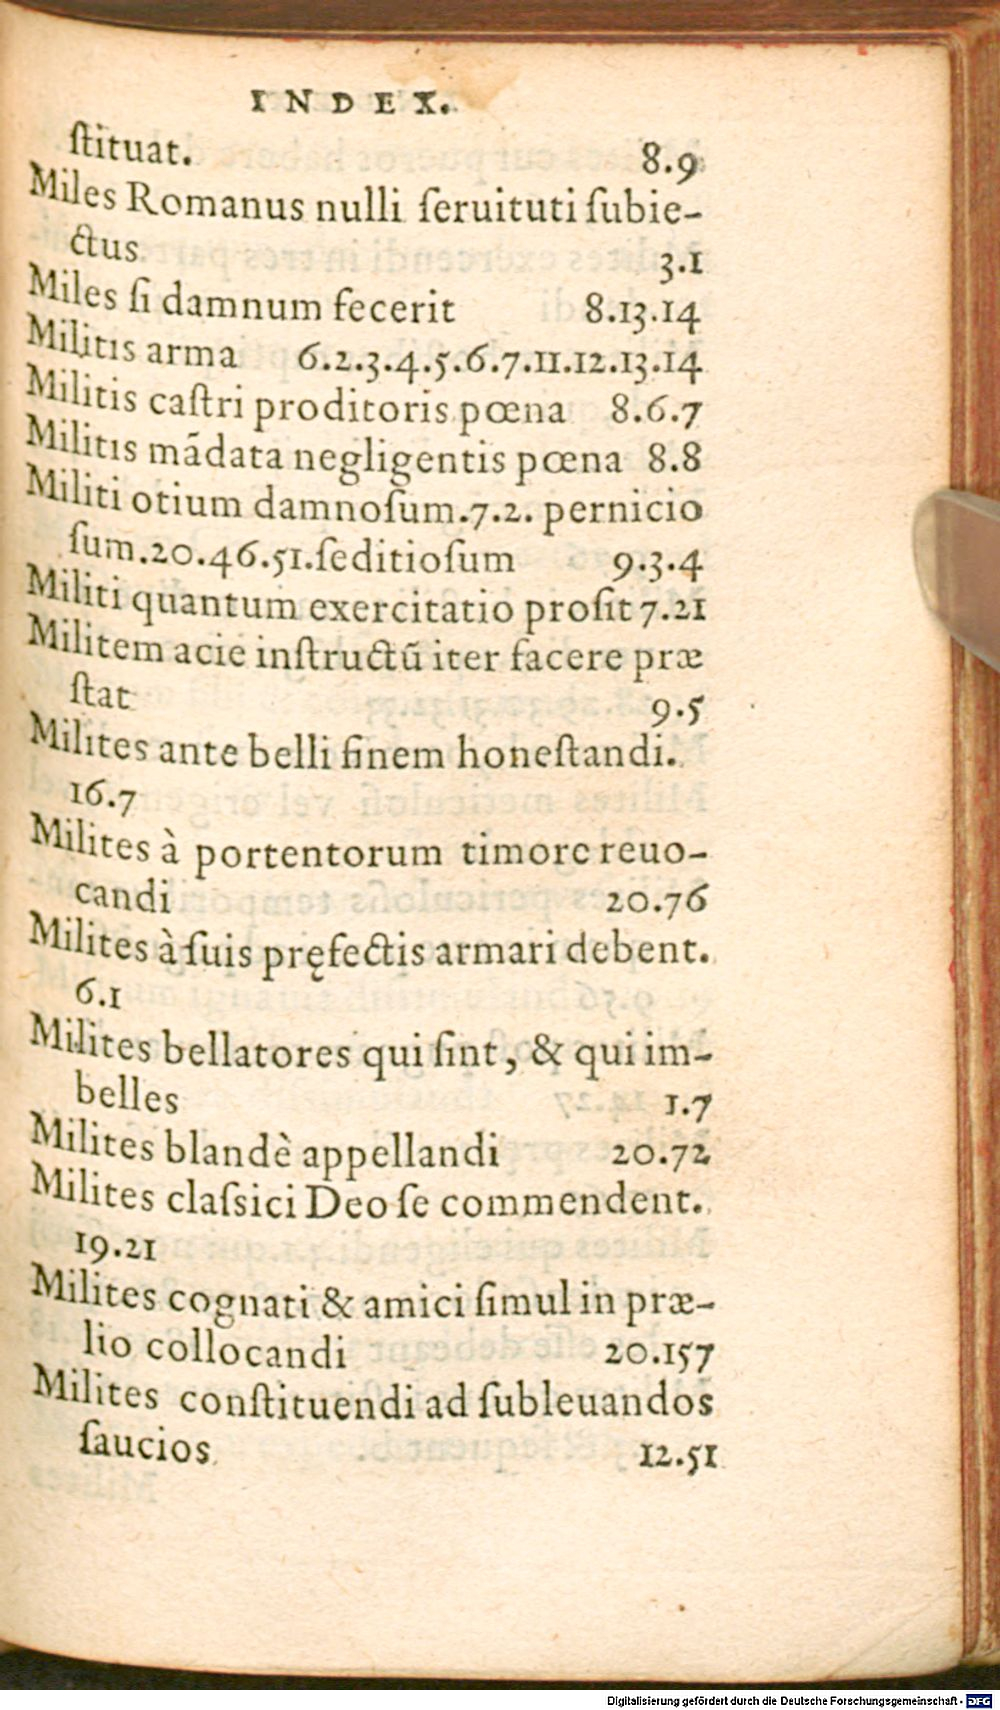 INDEX.
ſtituat. 8.9
Miles Romanus nulli ſeruituti ſubie-
ctus 3.1
Miles ſi damnum fecerit 8.13.14
Militis arma 6.2.3.4.5.6.7.11.12.13.14
Militis caſtri proditoris pœna 8.6.7
Militis mãdata negligentis pœna 8.8
Militi otium damnoſum.7.2. pernicio
ſum.20.46.51.ſeditioſum 9.3.4
Militi quantum exercitatio proſit 7.21
Militem acie inſtructũ iter facere præ
ſtat 9.5
Milites ante belli finem honeſtandi.
16.7
Milites à portentorum timore reuo-
candi 20.76
Milites à ſuis pręfectis armari debent.
6.1
Milites bellatores qui ſint, & qui im-
belles 1.7
Milites blandè appellandi 20.72
Milites claſsici Deo ſe commendent.
19.21
Milites cognati & amici ſimul in præ-
lio collocandi 20.157
Milites conſtituendi ad ſubleuandos
ſaucios 12.51
Digitalisierung gefördert durch die Deutsche Forschungsgemeinschaft - DFG